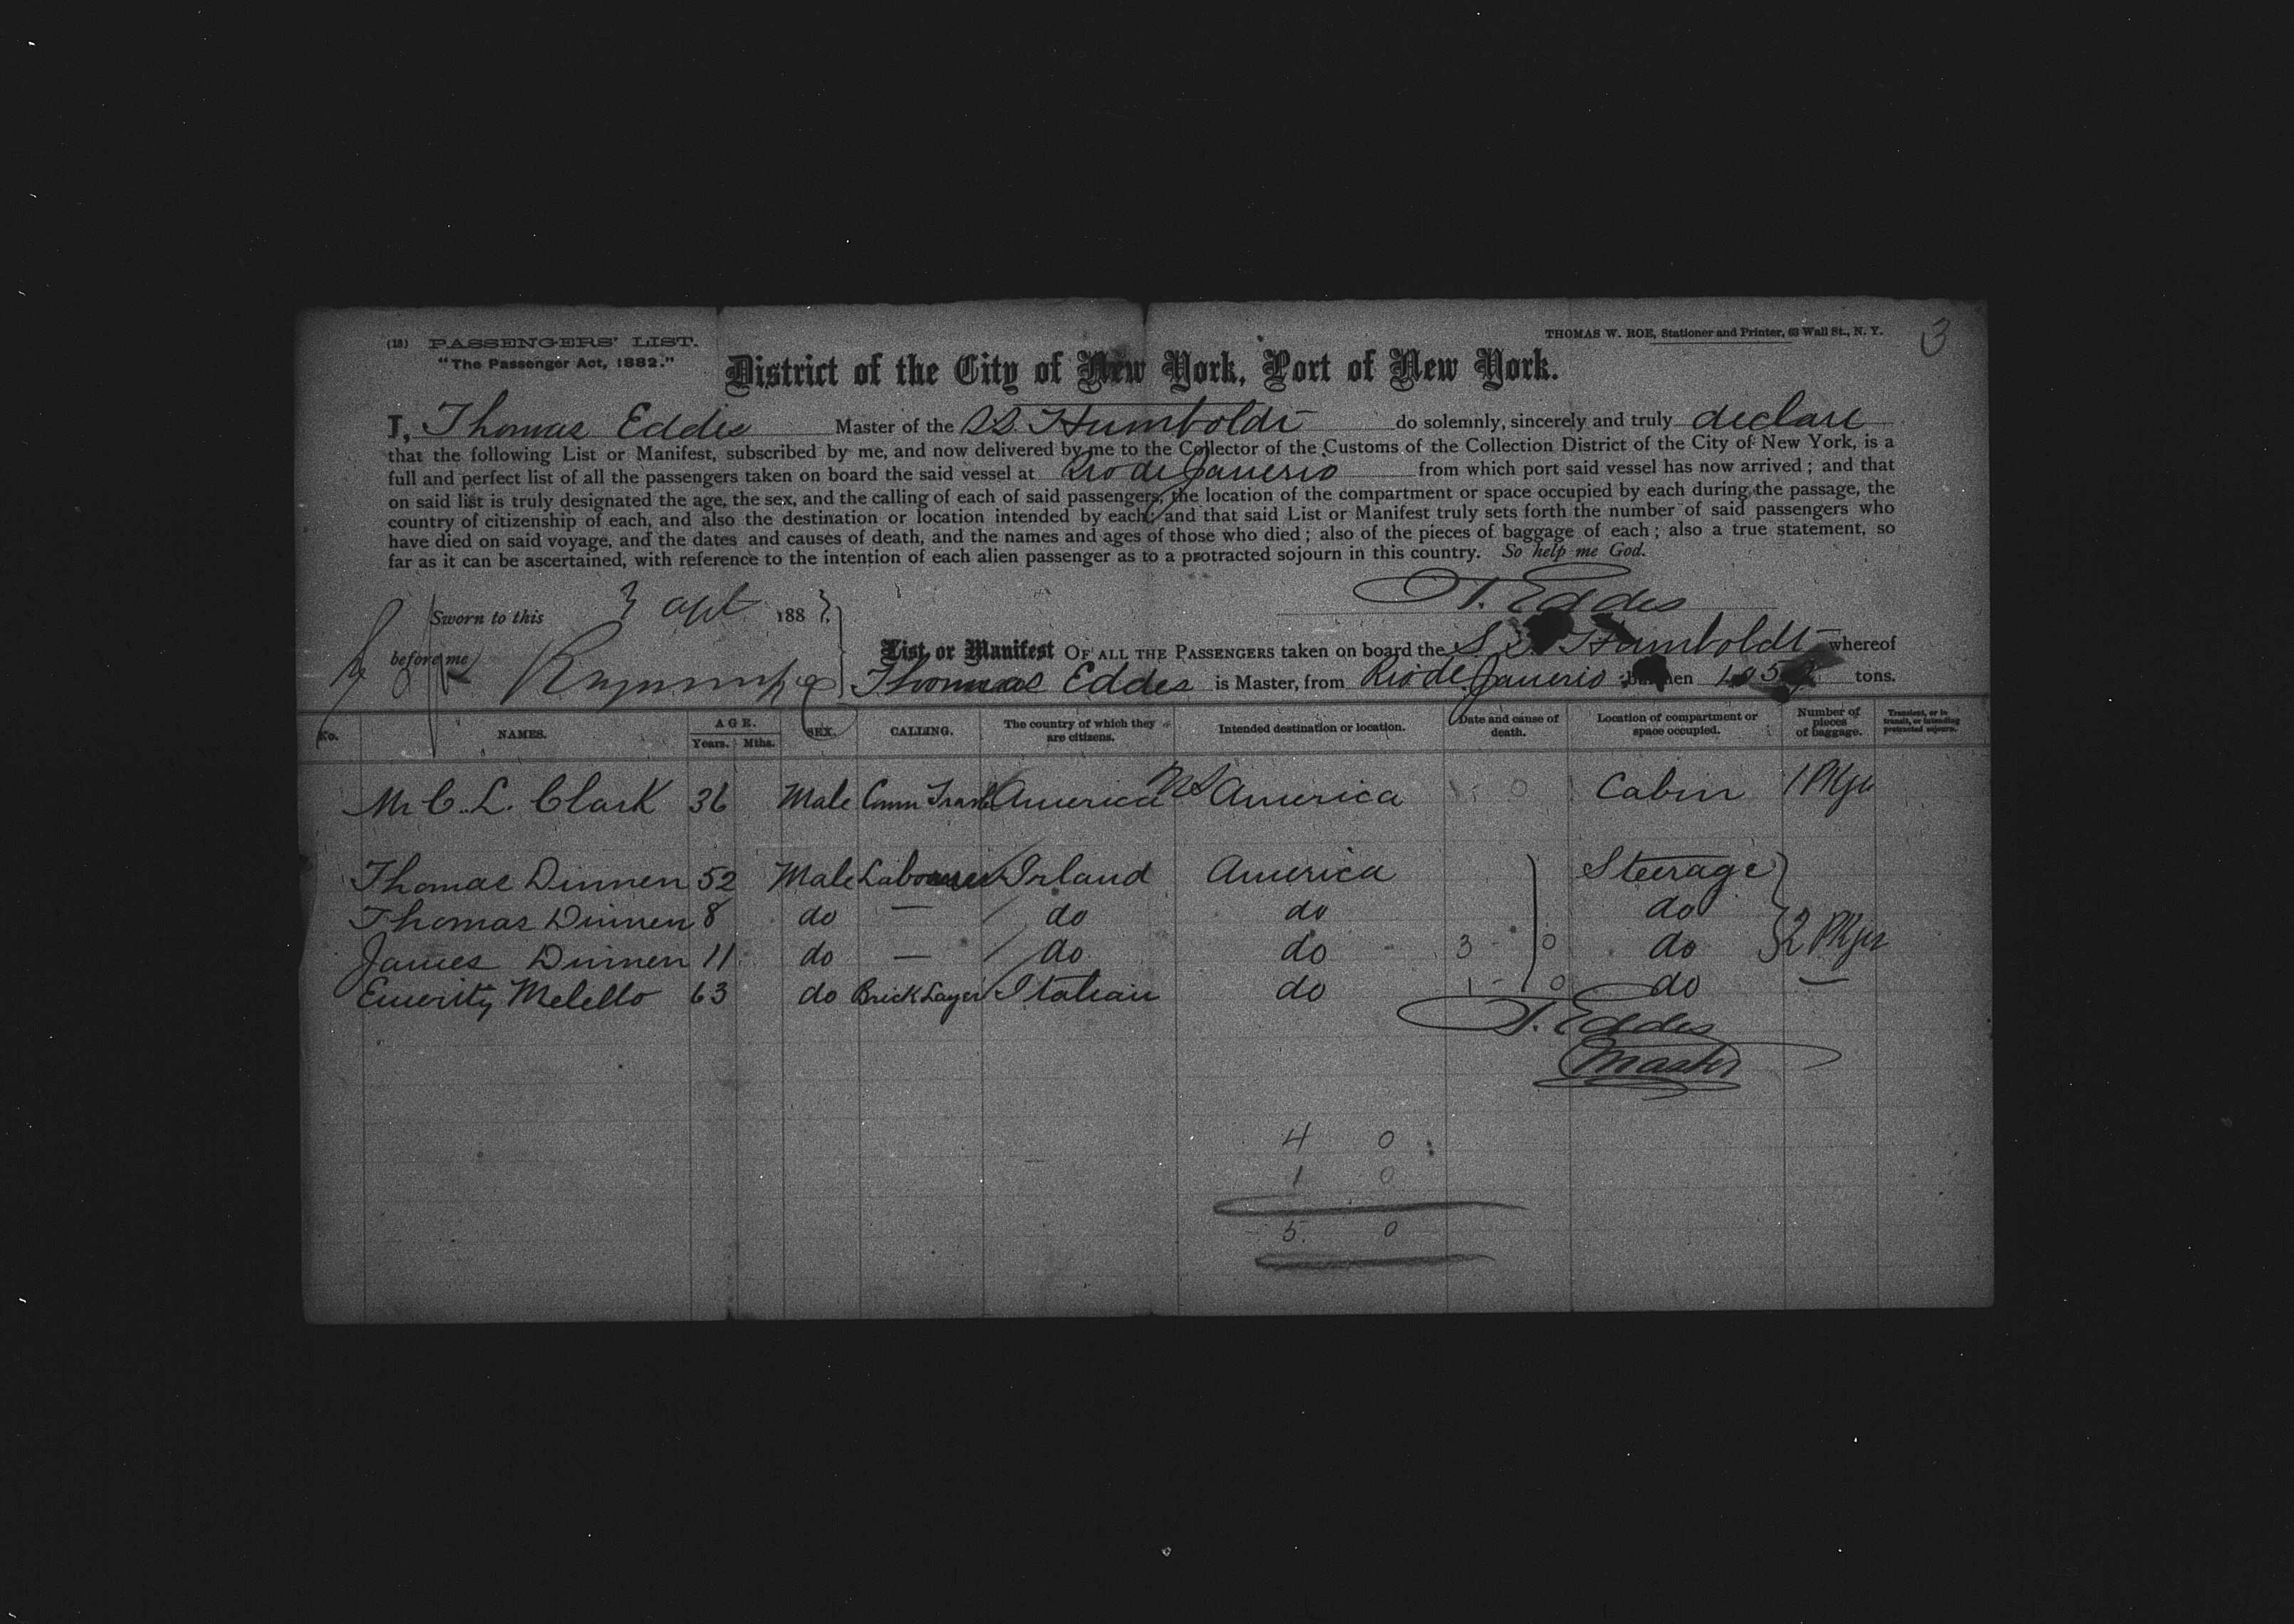 3
(13) PASSENGERS' LIST.
THOMAS W. ROE, Stationer and Printer, 63 Wall St., N. Y.
"The Passenger Act, 1882."
District of the City of New York, Port of New York.
I, Thomas Eddes Master of the SS Humboldt do solemnly, sincerely and truly declare
that the following List or Manifest, subscribed by me, and now delivered by me to the Collector of the Customs of the Collection District of the City of New York, is a
full and perfect list of all the passengers taken on board the said vessel at Rio de Janerio from which port said vessel has now arrived ; and that
on said list is truly designated the age, the sex, and the calling of each of said passengers, the location of the compartment or space occupied by each during the passage, the
country of citizenship of each, and also the destination or location intended by each ; and that said List or Manifest truly sets forth the number of said passengers who
have died on said voyage, and the dates and causes of death, and the names and ages of those who died ; also of the pieces of baggage of each ; also a true statement, so
far as it can be ascertained, with reference to the intention of each alien passenger as to a protracted sojourn in this country. So help me God.
T. Eddes
Sworn to this 3 apl 1883,
before me
List or Manifest OF ALL THE PASSENGERS taken on board the S S Humboldt whereof
Thomas Eddes is Master, from Rio de Janerio burthen tons.
No. NAMES. AGE. Years. Mths. SEX. CALLING. The country of which they are citizens. Intended destination or location. Date and cause of death. Location of compartment or space occupied. Number of pieces of baggage. Transient, or in transit, or intending protracted sojourn.
Mr C. L. Clark 36 Male Comm Trav America America 0 Cabin 1 Pkge
Thomas Dinnen 52 Male Labourer Irland America Steerage
Thomas Dinnen 8 do — do do do
James Dinnen 11 do — do do 3 0 do 2 Pkgs
Melello 63 do Brick Layer Italian do 1 - 0 do —
T. Eddes
Master
4 0
1 0
5 0